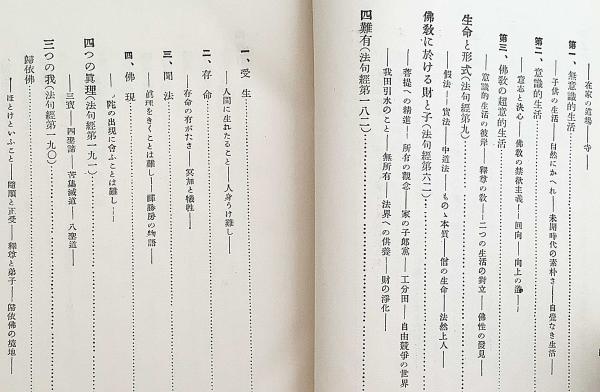 ――在家の道場――寺
第一、無意識的生活
――子供の生活――自然にかへれ――未開時代の素朴さ――自覺なき生活
第二、意識的生活
――意志と決心――佛教の禁欲主義――囘向――向上の道――
第三、佛教の超意的生活
――意識的生活の彼岸――釋尊の敎――二つの生活の對立――佛性の發見
生命と形式(法句經第九)
――假法――實法――中道法――ものゝ本質――僧の生命――法然上人
佛敎に於ける財と子(法句經第六二)
――菩提への精進――所有の觀念――家の子郎黨――工分田――自由競爭の世界
――我田引水のこと――無所有――法界への供養――財の淨化――
四難有(法句經第一八二)
一、受生
――人間に生れたること――人身うけ難し――
二、存命
――存命の有がたさ――冥加と犧牲――
三、聞法
――眞理をきくことは難し――的物語――
四、佛現
陀の出現に合ふことは難し――
四つの眞理(法句經第一九一)
――三寶――四聖諦――苦集滅道――八聖道――
三つの我(法句經第一九〇)
歸依佛
――ほとけといふこと――隨順と正受――釋尊と弟子――歸依佛の境地――